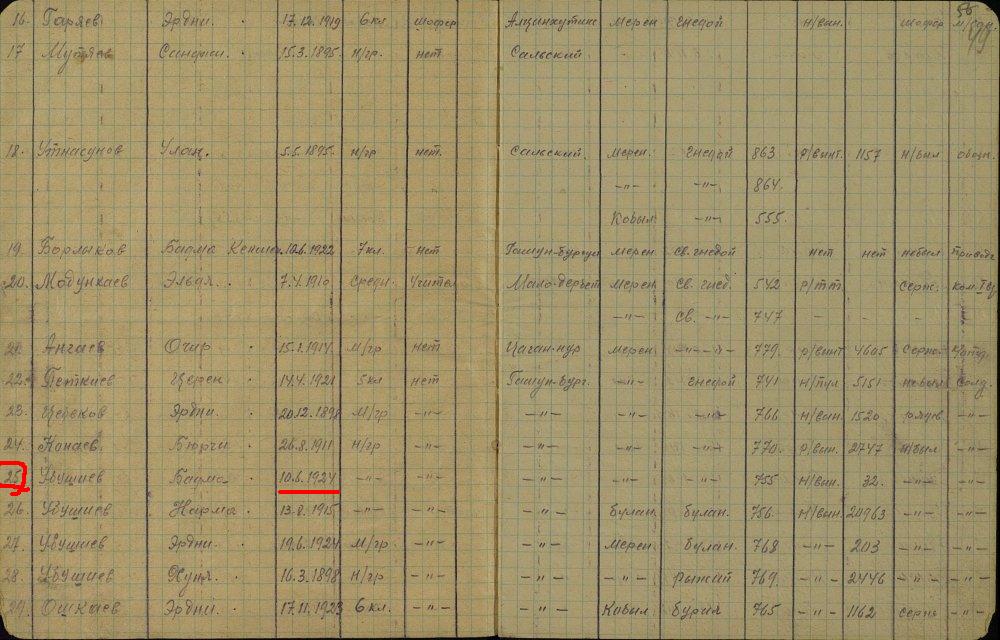 56
49
16. Гаряев Эрдни. 17.12.1919 6 кл шофер Алцынхутинс мерен гнедой н/вин. шофер
17 Мутяев Санджи. 15.3.1895. н/гр. нет Сальский
18. Утнасунов Улан. 5.5.1895. н/гр нет. Сальский. мерен. гнедой 863 р/винт. 1157 н/был
-"- -"- 864.
Кобыл -"- 555.
19. Борлыков Бадма 10.6.1922 7 кл. нет Гашун-Бургус мерен св. гнедой нет нет небыл
20. Модункаев Эльдя. 7.4.1910 средн. Учител Мало-Дербет мерен св. гнед. 542 серж.
-"- св. -"- 747 - - - -
21. Ангаев Очир 15.1.1914 м/гр нет Цаган-нур мерен -"- 779. р/винт 4605
22. Петкиев Церен 14.4.1921 5 кл нет Гашун-Бург. -"- гнедой 741 н/пул 5151 небыл солд.
23. Церенов Эрдни. 20.12.1898 м/гр -"- -"- -"- -"- 766 н/вин. 1520 -"-
24. Конаев. Бюрчи. 26.8.1911 н/гр. -"- -"- -"- -"- 770. р/вин. 2747 н/был -"-
25. Убушиев Бадма 10.6.1924 -"- -"- -"- -"- -"- 755 н/вин. 32. -"- -"-
26. Убушиев Нарма 13.8.1915 -"- -"- -"- булан. булан. 756. н/вин. 20963 -"- -"-
27. Убушиев Эрдни. 19.6.1924 м/гр. -"- -"- мерен булан. 768 -"- 203 -"- -"-
28. Убушиев 16.3.1898 н/гр -"- -"- -"- рыжий 769. -"- 2446 -"- -"-
29. Ошкаев Эрдни. 17.11.1923 6 кл. -"- -"- Кобыл бурая 765 -"- 1162 серж -"-